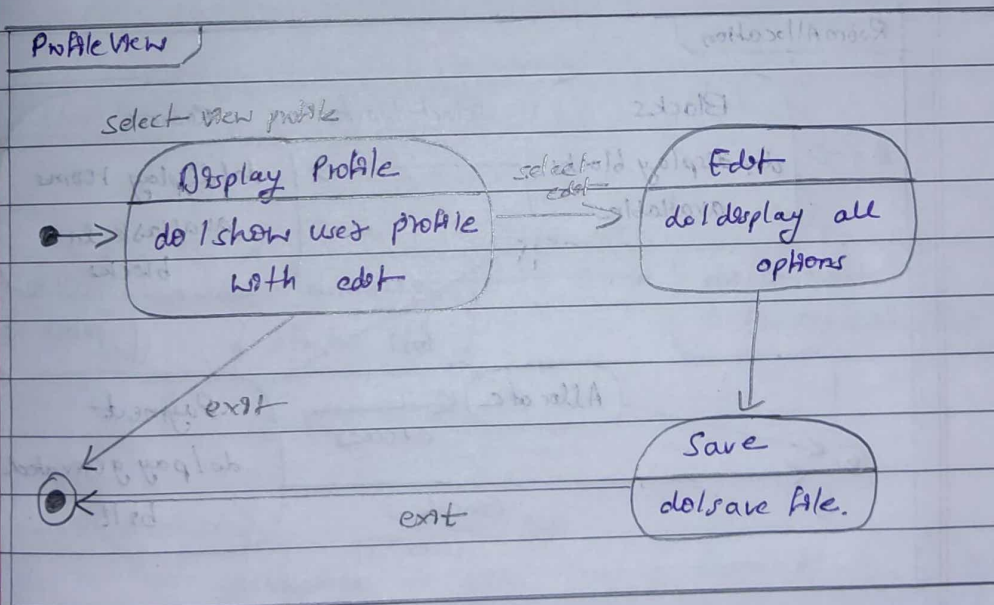 Profile View
select view profile
Display Profile
do / show user profile
with edit
select
edit
Edit
do / display all
options
exit
Save
do / save file.
exit